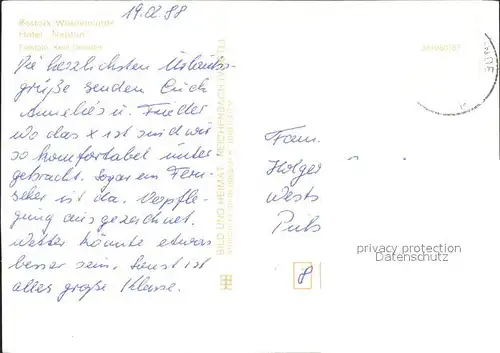 19.02.88
Rostock Warnemünde
Hotel „Neptun“
Die herzlichsten Urlaubs-
grüße senden Euch
Annelies u. Frieder
wo das x ist sind wir
so komfortabel unter
gebracht. Sogar ein Fern-
seher ist da. Verpfle-
gung ausgezeichnet.
Wetter könnte etwas
besser sein. Sonst ist
alles große Klasse.
BILD UND HEIMAT REICHENBACH (VOGTL)
Fam.
Holger
Wests
Puls
privacy protection
Datenschutz
8